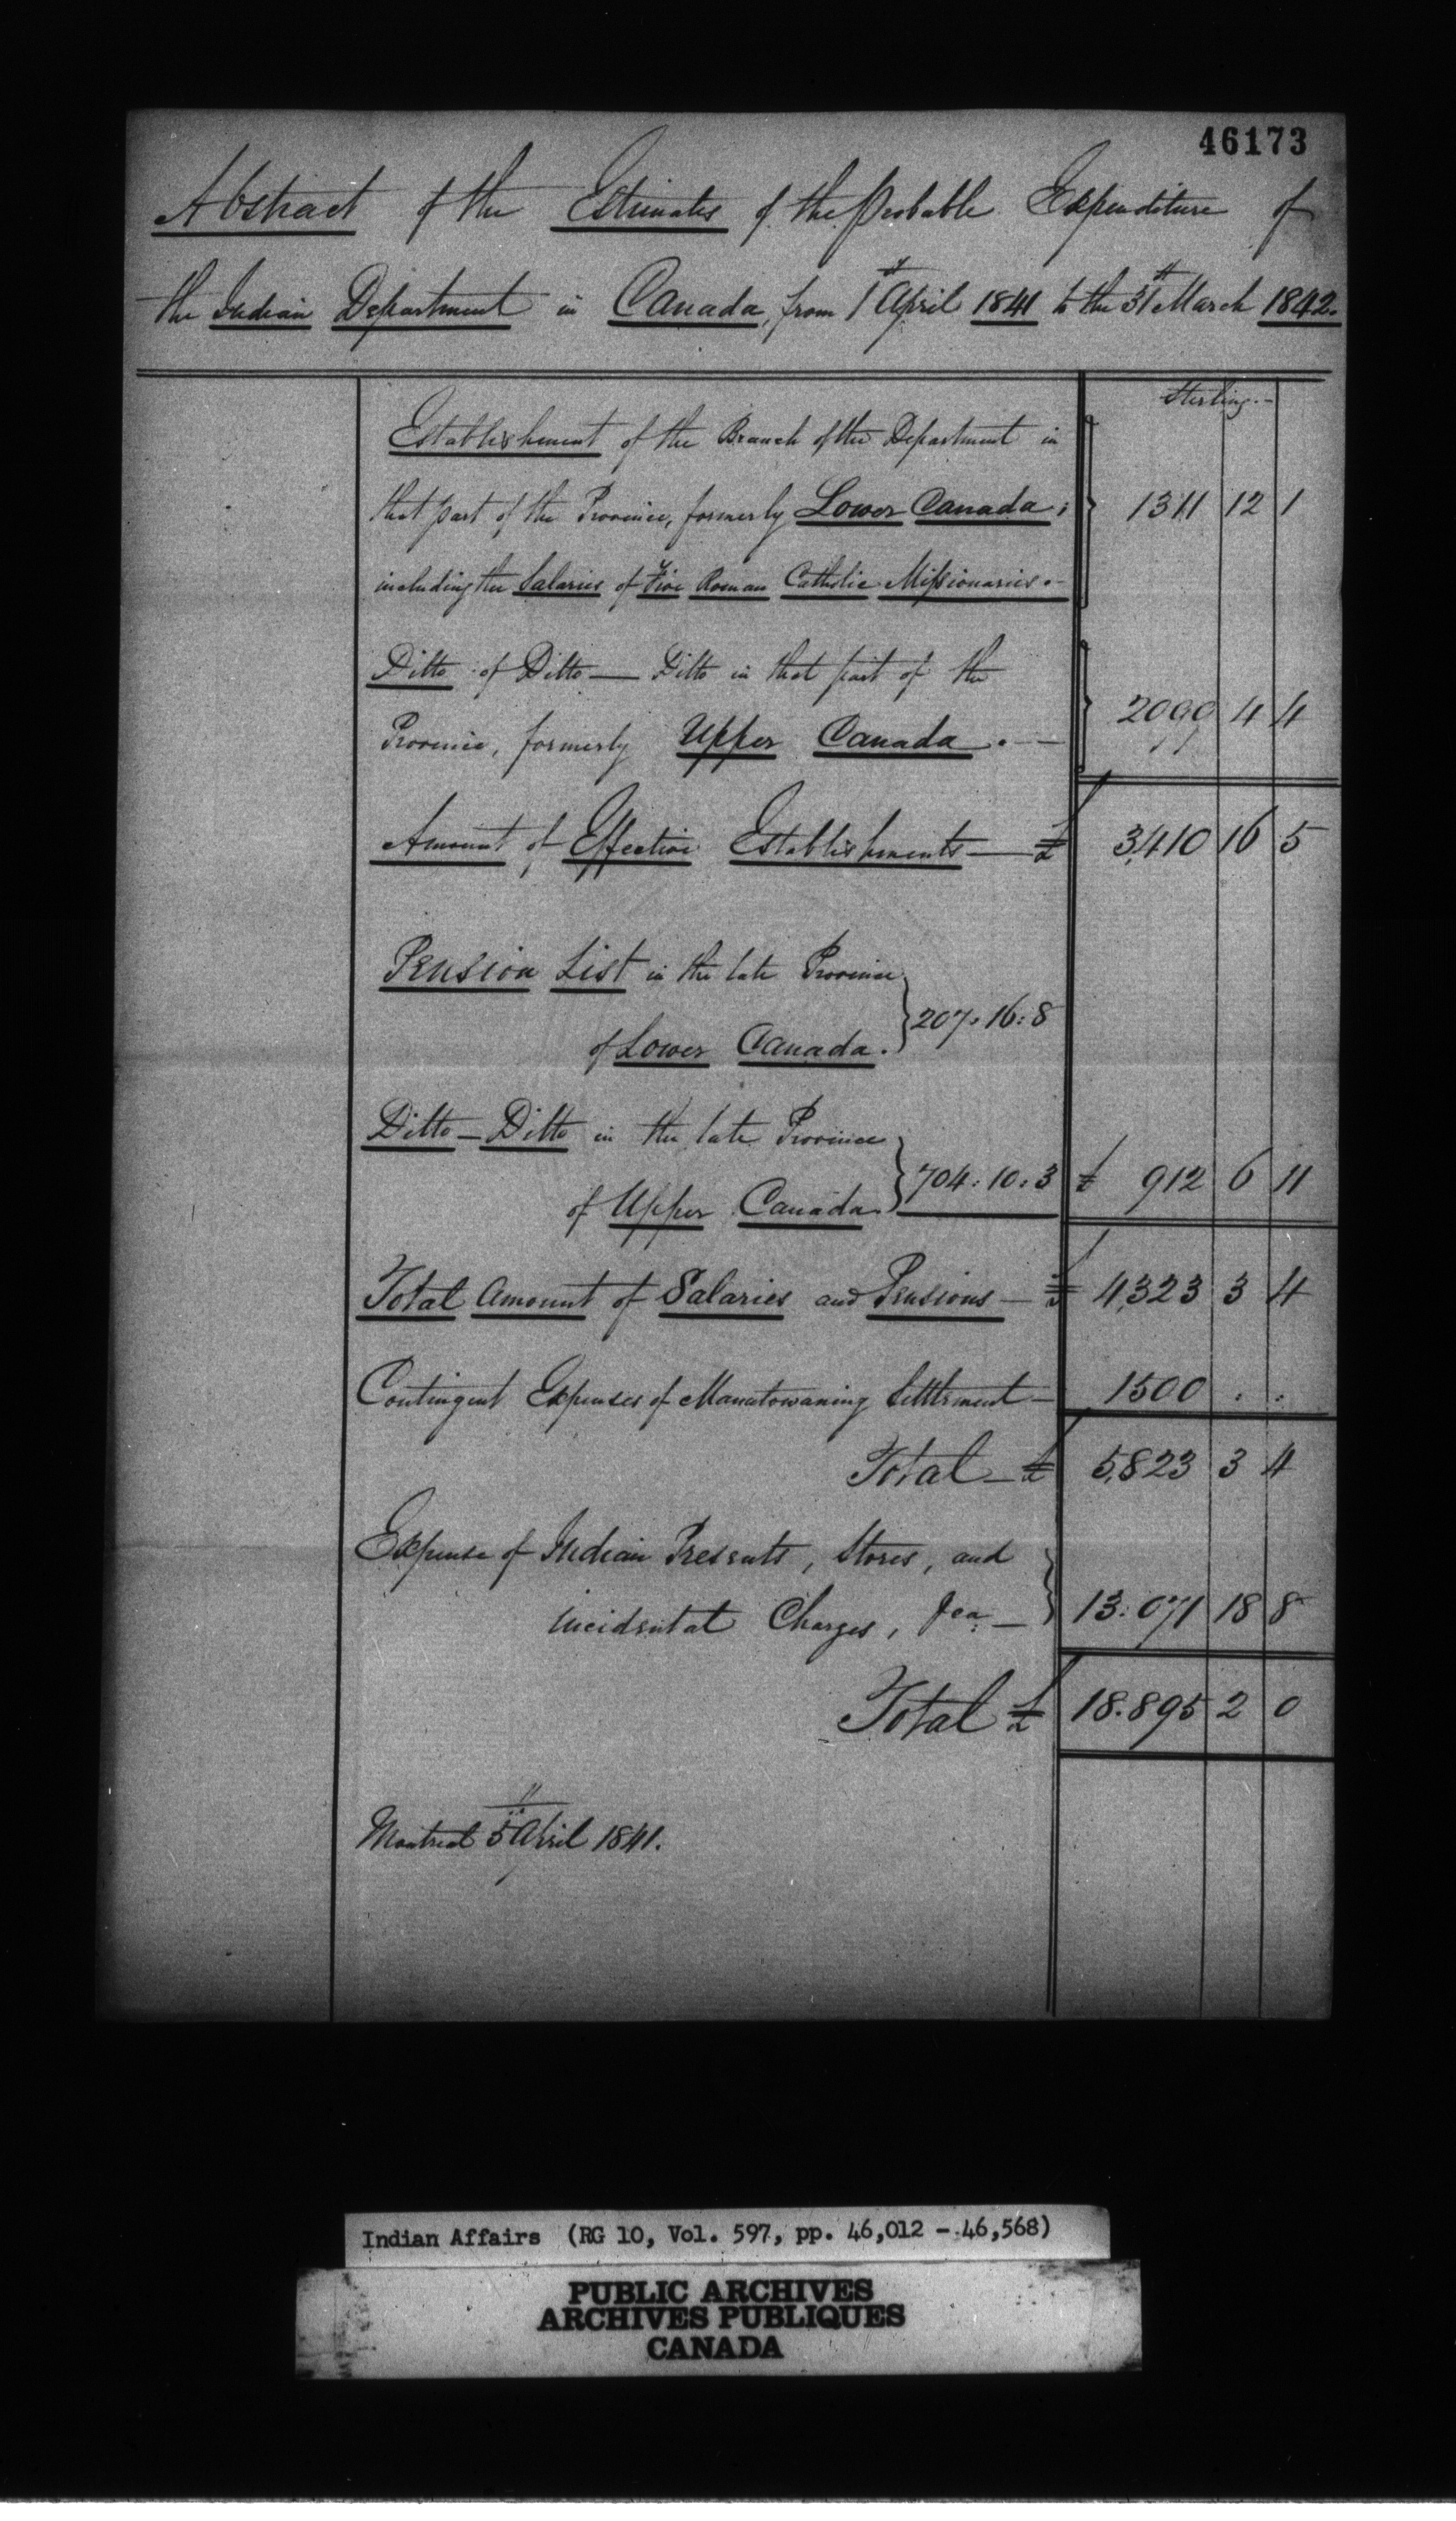 46173
Abstract of the Estimates of the Probable Expenditure of
the Indian Department in Canada, from 1st April 1841 to the 31st March 1842.
Sterling.-
Establishment of the Branch of the Department in
that part of the Province, formerly Lower Canada; 1311 12 1
including the Salaries of Five Roman Catholic Missionaries.-
Ditto of Ditto — Ditto in that part of the
Province, formerly Upper Canada. — 2099 4 4
Amount of Effective Establishments — £ 3,410 16 5
Pension List in the late Province
of Lower Canada. 207:16:8
Ditto — Ditto in the late Province
of Upper Canada. 704:10:3 £ 912 6 11
Total Amount of Salaries and Pensions — £ 4,323 3 4
Contingent Expenses of Manatowaning Settlement — 1500 : :
Total — £ 5,823 3 4
Expense of Indian Presents, Stores, and
incidental Charges, &ca — 13.071 18 8
Total £ 18.895 2 0
Montreal 5th April 1841.
Indian Affairs (RG 10, Vol. 597, pp. 46,012 - 46,568)
PUBLIC ARCHIVES
ARCHIVES PUBLIQUES
CANADA